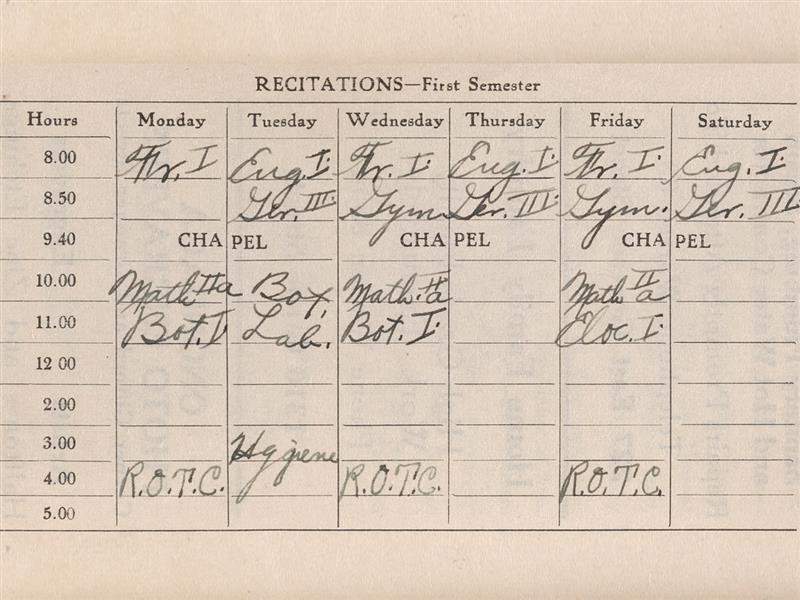 RECITATIONS—First Semester
Hours Monday Tuesday Wednesday Thursday Friday Saturday
8.00 Fr. I Eng. I. Fr. I. Eng. I. Fr. I. Eng. I.
8.50 Ger. III. Gym. Ger. III. Gym. Ger. III
9.40 CHAPEL CHAPEL CHAPEL
10.00 Math IIa Bot. Math. IIa Math IIa
11.00 Bot. I Lab. Bot. I. Eloc. I.
12 00
2.00
3.00 Hygiene
4.00 R.O.T.C. R.O.T.C. R.O.T.C.
5.00